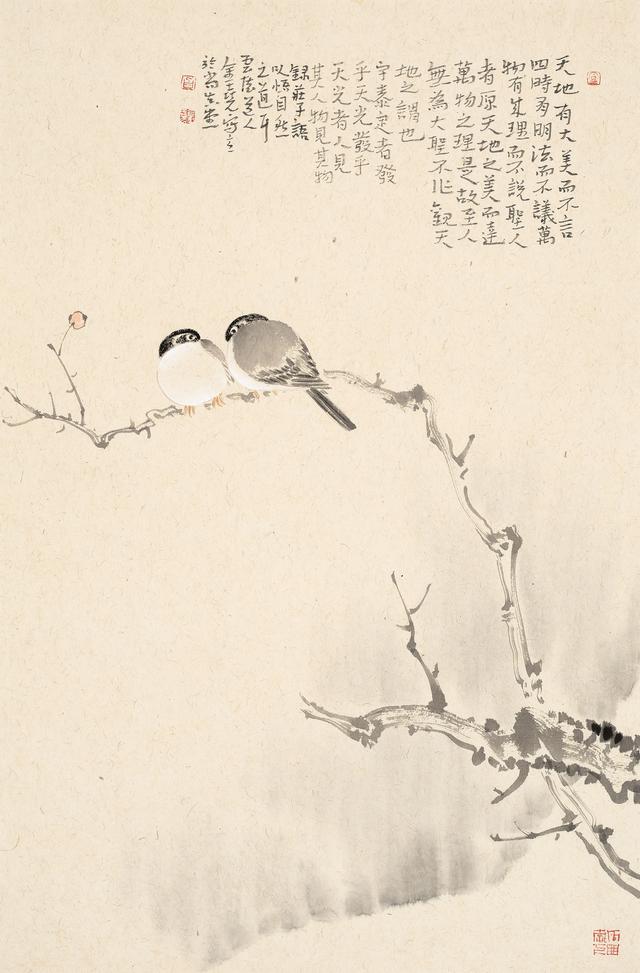 天地有大美而不言
四時有明法而不議萬
物有成理而不說聖人
者原天地之美而達
萬物之理是故至人
無為大聖不作觀天
地之謂也
宇泰定者發
乎天光發乎
天光者人見
其人物見其物
錄莊子語
以悟自然
之道耳
道人
寫之
於尚